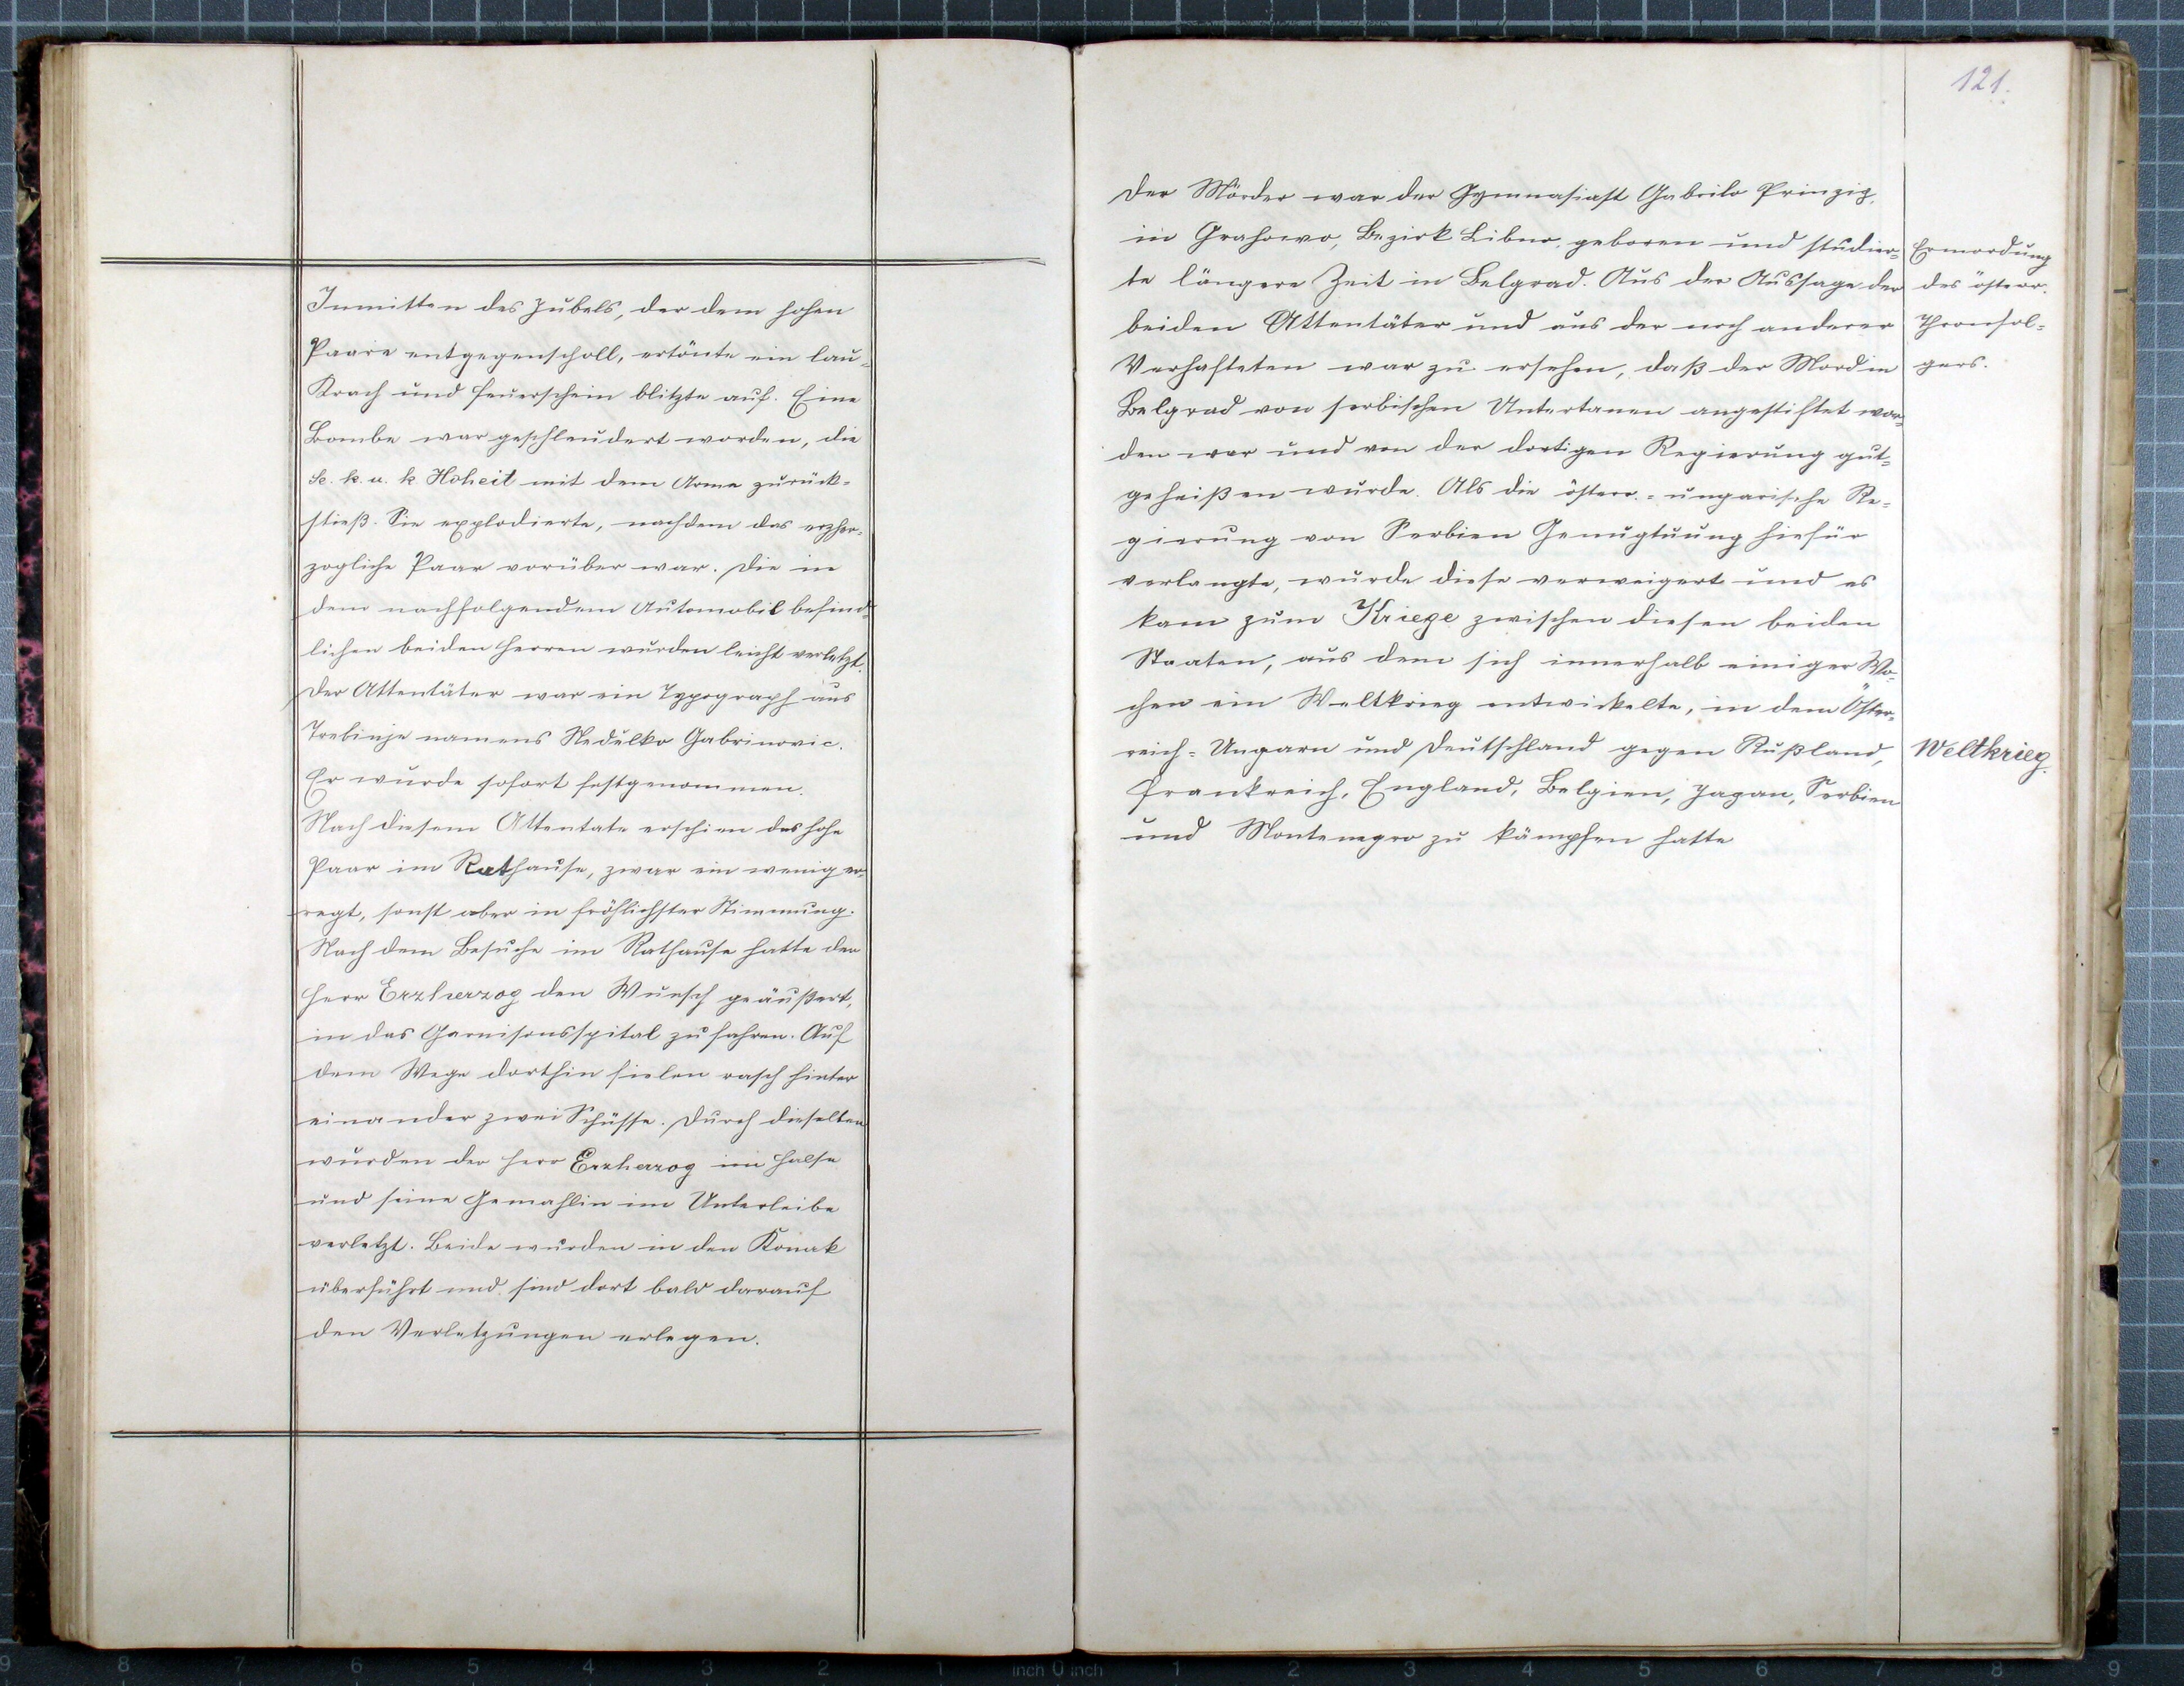 Inmitten des Jubels, der dem hohen
Paare entgegenscholl, ertönte ein lau-
Krach und Feuerschein blitzte auf. Eine
Bombe war geschleudert worden, die
Se. k. u. k Hoheit mit dem Arme zurück-
stieß. Sie explodierte, nachdem das erzher-
zogliche Paar vorüber war. Die in
dem nachfolgendem Automobil befind-
lichen beiden Herren wurden leicht verletzt.
Der Attentäter war ein Typograph aus
Trebinje namens Nedulko Gabrinovic.
Er wurde sofort festgenommen.
Nach diesem Attentate erschien das hohe
Paar im Rathause, zwar ein wenig er-
regt, sonst aber in fröhlichster Stimmung.
Nach dem Besuche im Rathause hatte der
Herr Erzherzog den Wunsch geäußert,
in das Garnisonsspital zu fahren. Auf
dem Wege dorthin fielen rasch hinter
einander zwei Schüsse. Durch dieselben
wurden der Herr Erzherzog im Halse
und seine Gemahlin im Unterleibe
verletzt. Beide wurden in den Konak
überführt und sind dort bald darauf
den Verletzungen erlegen.
121.
Der Mörder war der Gymnasiast Gabrilo Prinzip,
in Grahowo, Bezirk Libno, geboren und studier-
te längere Zeit in Belgrad. Aus der Aussage der
beiden Attentäter und aus der noch anderer
Verhafteten war zu ersehen, daß der Mord in
Belgrad von serbischen Untertanen angestiftet wor-
den war und von der dortigen Regierung gut-
geheißen wurde. Als die österr.-ungarische Re-
gierung von Serbien Genugtuung hiefür
verlangte, wurde diese verweigert und es
kam zum Kriege zwischen diesen beiden
Staaten, aus dem sich innerhalb einiger Wo-
chen ein Weltkrieg entwickelte, in dem Öster-
reich-Ungarn und Deutschland gegen Rußland,
Frankreich, England, Belgien, Japan, Serbien
und Montenegro zu kämpfen hatte
Ermordung
des österr.
Thronfol-
gers.
Weltkrieg.
9 8 7 6 5 4 3 2 1 inch 0 inch 1 2 3 4 5 6 7 8 9